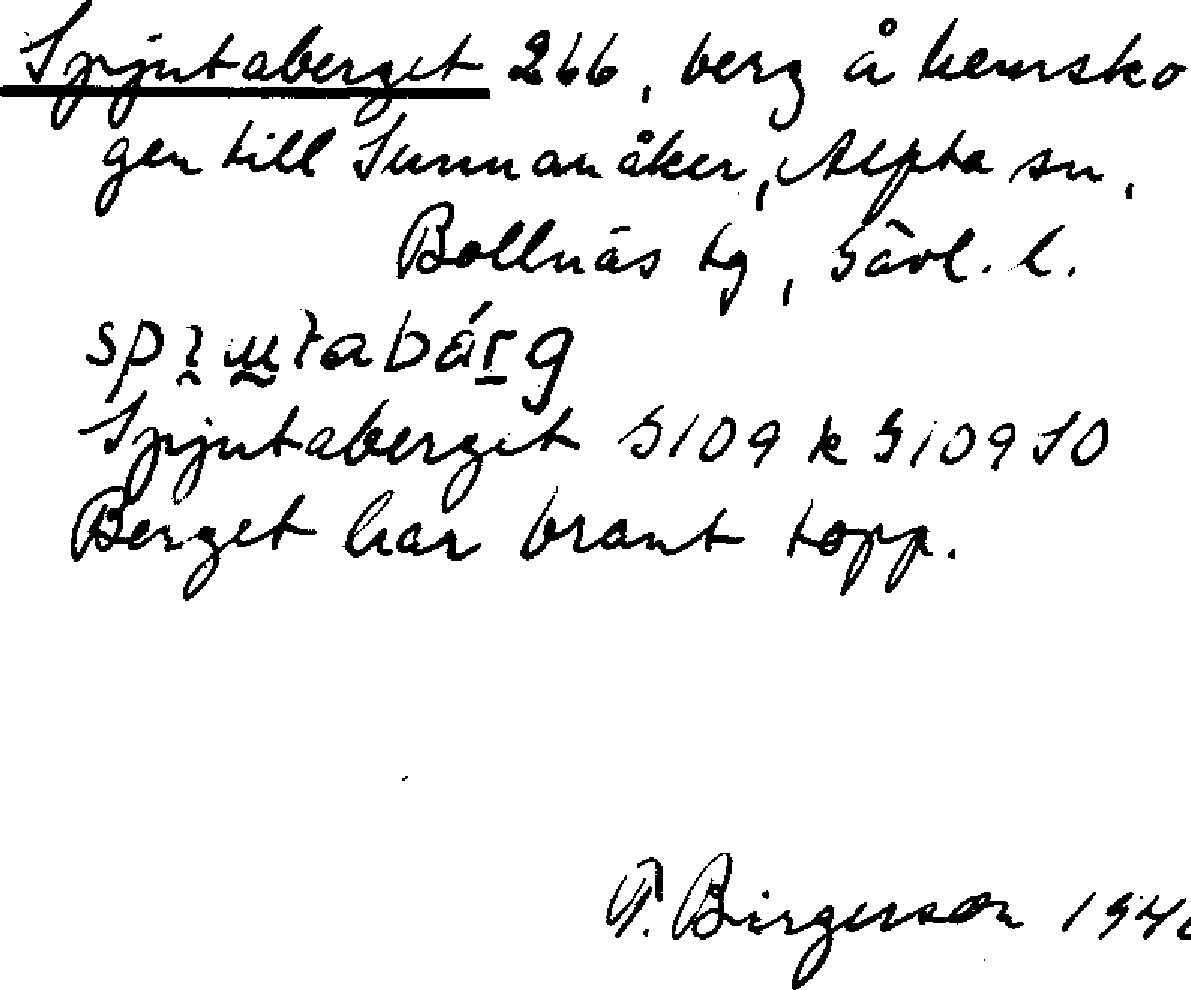 Spjutaberget 266, berg å hemsko
gen till Sunnanåker, Alfta sn,
Bollnäs tg, Gävl. l.
Spjutaberget 5109 k 5109 SO
Berget har brant topp.
F. Birgerson 194